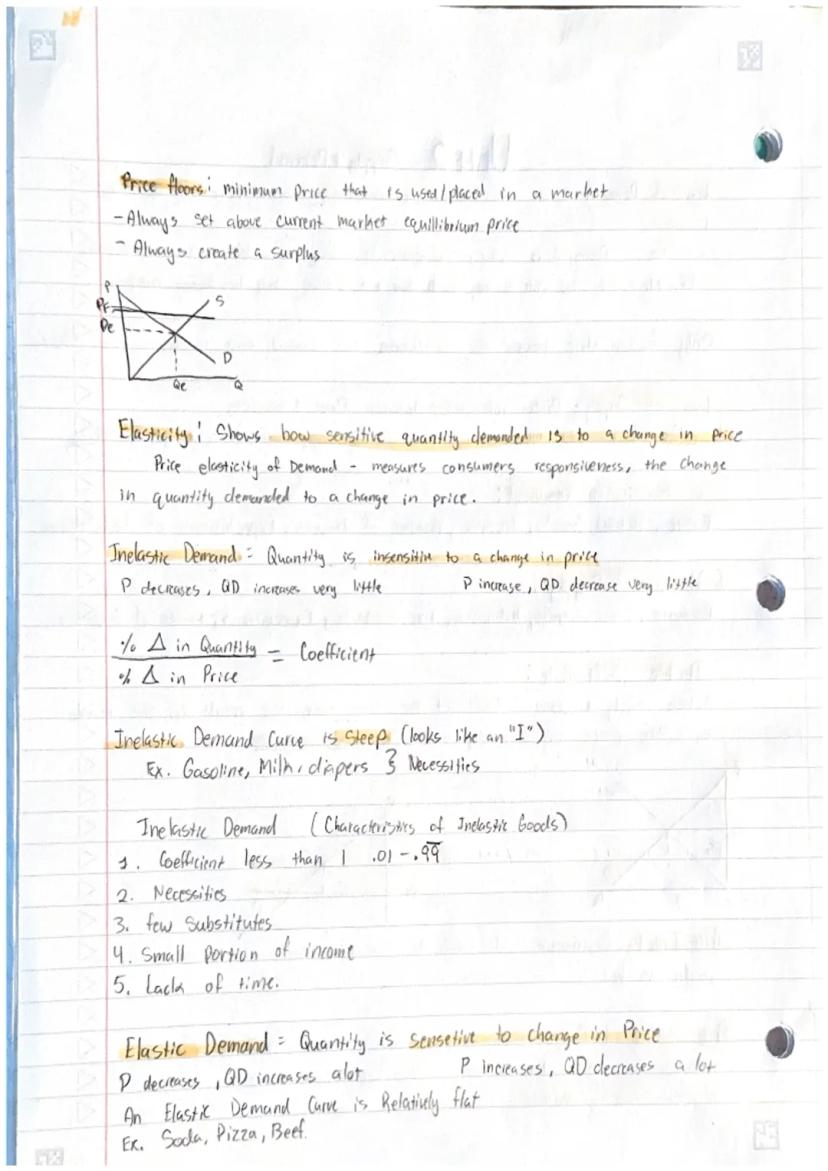 Price floors: minimum price that is used/placed in a market
- Always set above current market equillibrium price
- Always create a surplus
P
PF
Pe
S
D
Qe
Q
Elasticity: Shows how sensitive quantity demanded is to a change in price
Price elasticity of Demand - measures consumers responsiveness, the change
in quantity demanded to a change in price.
Inelastic Demand = Quantity is insensitive to a change in price
P decreases, QD increases very little
P increase, QD decrease very little
% Δ in Quantity
% Δ in Price
= Coefficient
Inelastic Demand Curve is steep (looks like an "I")
Ex. Gasoline, Milk, diapers } Necessities
Inelastic Demand (Characteristics of Inelastic Goods)
1. Coefficient less than 1 .01 - .99̅
2. Necessities
3. few substitutes
4. Small portion of income
5. Lack of time.
Elastic Demand = Quantity is sensetive to change in Price
P decreases, QD increases alot
P increases, QD decreases a lot
An Elastic Demand Curve is Relatively flat
Ex. Soda, Pizza, Beef.